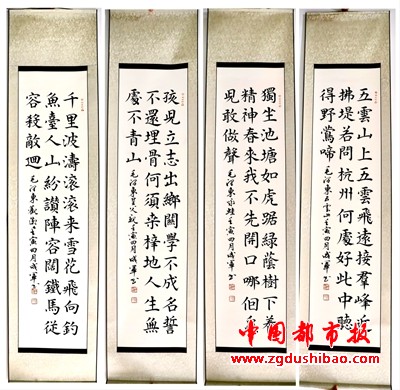 五雲山上五雲飛遠接群峰近
拂堤若問杭州何處好此中聽
得野鶯啼
毛澤東五雲山壬寅四月成軍書
獨坐池塘如虎踞綠蔭樹下養
精神春來我不先開口哪個虫
兒敢做聲
毛澤東詠蛙壬寅四月成軍書
孩兒立志出鄉關學不成名誓
不還埋骨何須桑梓地人生無
處不青山
毛澤東 壬寅四月成軍書
千里波濤滾滾來雪花飛向釣
魚臺人山紛讚陣容闊鐵馬從
容殺敵迴
毛澤東觀潮壬寅四月成軍書
中国都市报
www.zgdushibao.com